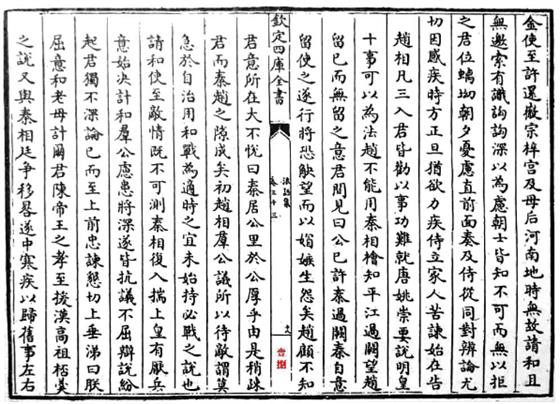 金使至許還徽宗梓宫及母后河南地時無故請和且
無邀索有識訩訩深以為慮朝士皆知不可而無以拒
之君位蠕坳朝夕憂慮直前面奏及侍從同對辨論尤
切因感疾時方正旦猶欲力疾侍立家人苦諫始在告
趙相凡三入君皆勸以事功難就唐姚崇要說明皇
十事可以為法趙不能用秦相檜知平江過闕望趙
留已而無留之意君間見曰公已許秦過闕秦自意
留使之遂行將恐觖望而以媢嫉生怨矣趙顧不知
欽定四庫全書
浪語集
卷三十三
君意所在大不忱曰秦居公里於公厚乎由是稍疎
君而秦趙之隙成矣初趙相羣公議所以待敵謂莫
急於自治用和戰為適時之宜未始持必戰之說也
請和使至敵情既不可測秦相復入揣上皇有厭兵
意始決計和羣公慮患將深遂皆抗議不屈辯說紛
起君獨不深論已而至上前忠諫懇切上垂涕曰朕
屈意和老母計爾君陳帝王之孝至援漢高祖桮羹
之說又與秦相廷爭移晷遂中寒疾以歸舊事左右